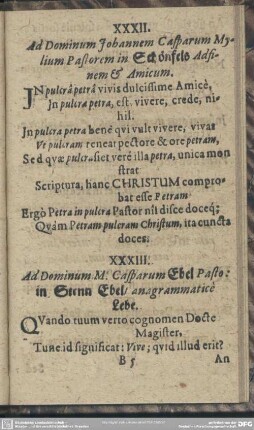 XXXII.
Ad Dominum Johannem Casparum My-
lium Pastorem in Schönfels Adfi-
nem & Amicum.
IN pulcrâ petrâ vivis dulcissime Amice,
In pulcra petra, est. vivere, crede, ni-
hil.
In pulcra petra benè qui vult vivere, vivat
Ut pulcram teneat pectore & ore petram,
Sed quæ pulcra siet verè illa petra, unica mon
strat
Scriptura, hanc CHRISTUM compro-
bat esse Petram
Ergò Petra in pulcra Pastor nil disce doceq;
Quàm Petram pulcram Christum, ita cuncta
doces.
XXXIII.
Ad Dominum M. Casparum Ebel Pasto:
in Stenn Ebel/ anagrammaticè
Lebe.
QVando tuum verto cognomen Docte
Magister,
Tunc id significat: Vive; qvid illud erit?
B 5 An